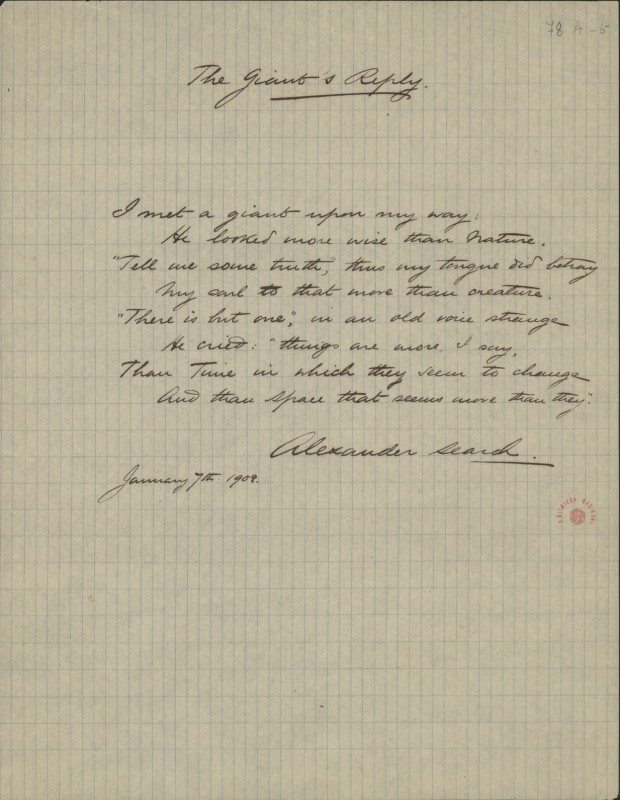 78 A - 5
The Giant's Reply.
I met a giant upon my way;
He looked more wise than Nature.
"Tell me some truth", thus my tongue did betray
My soul to that more than creature.
"There is but one", in an old voice strange
He cried: "things are more, I say,
Than Time in which they seem to change
And than Space that seems more than they."
Alexander Search.
January 7th 1909.